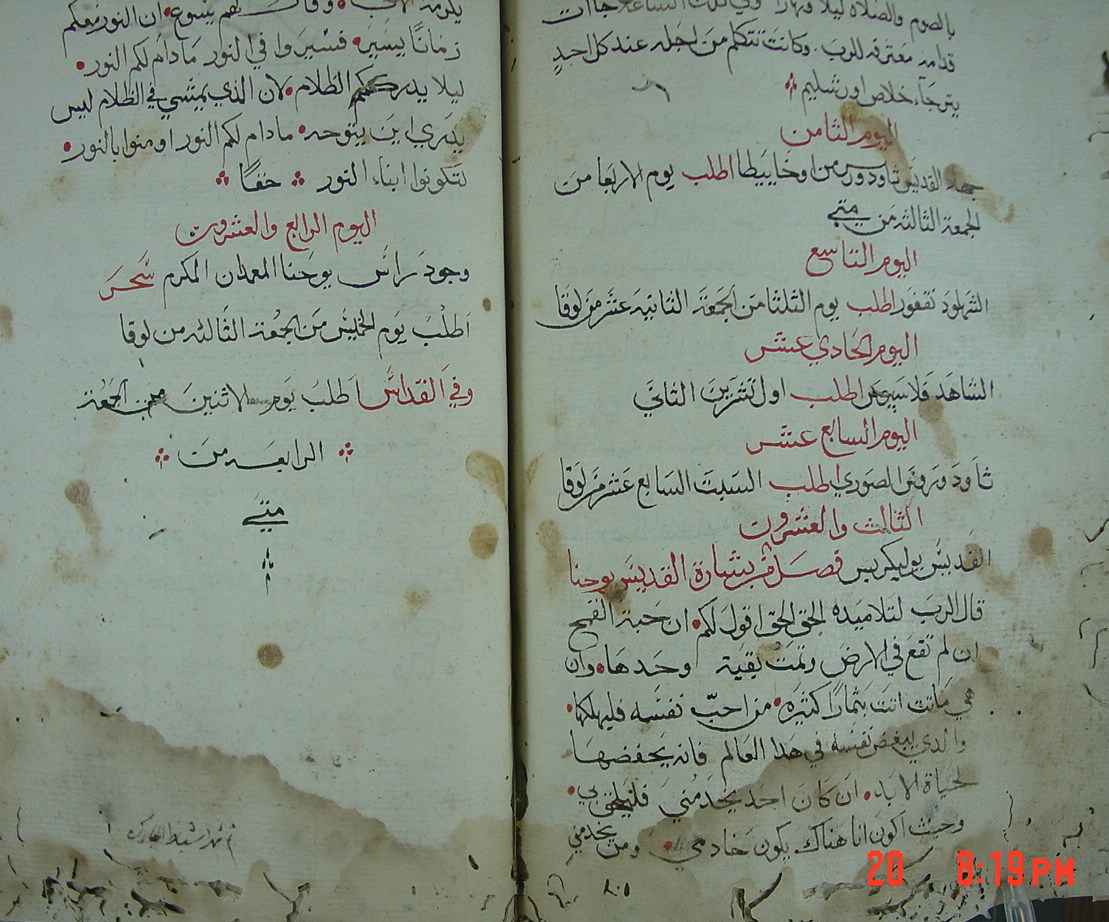 بالصوم والصلاه ليلا ونهارا وفي تلك الساعه جاات
قدامه معترفه للرب. وكانت تتكلم من اجله عند كل احدٍ
يترجاء خلاص اورشليم
اليوم الثامن
القديس تاودورس من اوخاييطا اطلب يوم الاربعا من
الجمعة الثالثه من متي
اليوم التاسع
نقفور اطلب يوم الثلثا من الجمعة الثانيه عشر من لوقا
اليوم الحادي عشر
الشاهد فلاسيوس اطلب اول تشرين الثاني
اليوم السابع عشر
ثاودورس الصوري اطلب السبت السابع عشر من لوقا
الثالث والعشرون
القديس بوليكربس فصل من بشارة القديس يوحنا
قال الرب لتلاميده الحق الحق اقول لكم ان حبة القمح
ان لم تقع في الارض وتمت بقية وحدها وان
هي ماتت اتت بثمار كثيره من احبّ نفسه فليهلكها
والدي يبغض نفسه في هدا العالم فانه يحفضها
لحياة الابد ان كان احد يخدمني فليلحق بي
وحيث اكون انا هناك يكون خادمي ومن يخدمني
يكرمه الاب وقال لهم يسوع ان النور معكم
زمانا يسير فسيروا في النور مادام لكم النور
ليلا يدرككم الظلام لان الذي يمشي في الظلام ليس
يدري اين يتوجه مادام لكم النور اومنوا بالنور
لتكونوا ابناء النور حقًا
اليوم الرابع والعشرون
وجود راس يوحنا المعمدان المكرم سَحَر
اطلب يوم الخميس من الجمعة الثالثه من لوقا
وفي القداس اطلب يوم الاثنين من الجمعة
الرابعه من
متي
20 8:19 PM